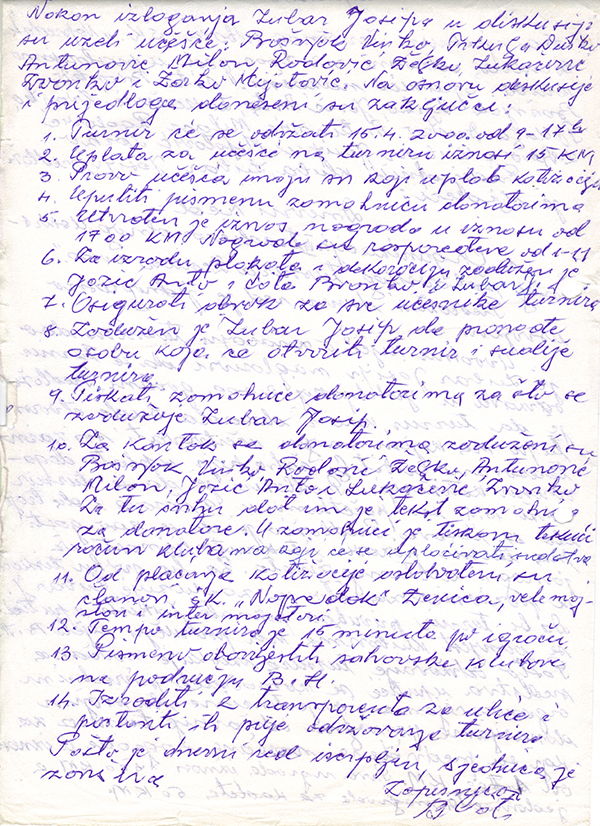 Nakon izlaganja Zubar Josipa u diskusiji
su uzeli učešće: Bošnjak Vinko, Duško
Antunović Milan, Radović Željko, Lukačević
Zvonko i Zorko Mijatović. Na osnovu diskusije
i prijedloga doneseni su zaključci:
1. Turnir će se održati 15.4. 2000. od 9-17 h
2. Uplata za učešće na turniru iznosi 15 KM
3. Pravo učešća imaju svi koji uplate kotizaciju
4. Uputiti pismenu zamolnicu donatorima
5. Utvrđen je iznos nagrada u iznosu od
1700 KM Nagrade su raspoređene od 1-11
6. Za izradu plakata i dekoraciju zadužen je
Jozić Anto i Ćota Branko i Zubar J.
7. Osigurati obrok za sve učesnike turnira
8. Zadužen je Zubar Josip da pronađe
osobu koja će otvoriti turnir i sudije
turnira
9. Tiskati zamolnice donatorima za što se
zadužuje Zubar Josip.
10. Za kontakt sa donatorima zaduženi su
Bošnjak Vinko Radović Željko, Antunović
Milan, Jozić Anto, Lukačević Zvonko
Za tu svrhu dat im je tekst zamolnice
za donatore. U zamolnici je tiskan tekući
račun kluba na koji će se uplaćivati sredstva
11. Od plaćanja kotizacije oslobođeni su
članovi šk. „Napredak" Zenica, velemaj-
stori i inter majstori
12. Tempo turnira je 15 minuta po igraču
13. Pismeno obavijestiti šahovske klubove
na području B.H.
14. Izraditi 2 transparenta za ulice i
postaviti ih prije održavanja turnira
Pošto je dnevni red iscrpljen, sjednica je
završena
Zapisničar